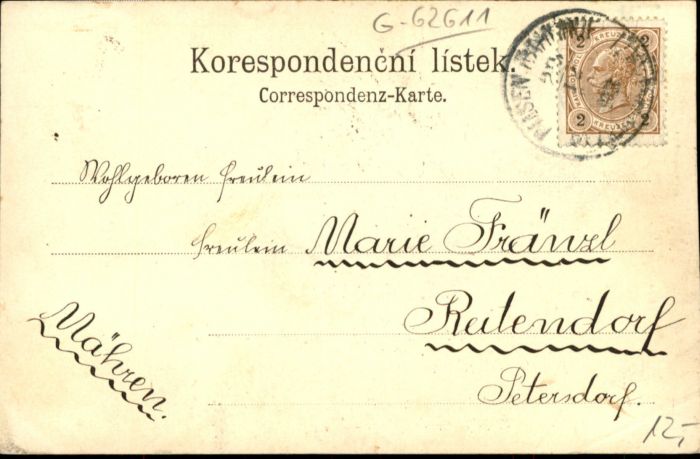 G-62611
Korespondenční lístek.
Correspondenz-Karte.
PILSEN
2 KREUZER 2
2 KREUZER 2
Wohlgeboren Freulein
Freulein Marie Fränzl
Reitendorf
Petersdorf.
Mähren.
12,-